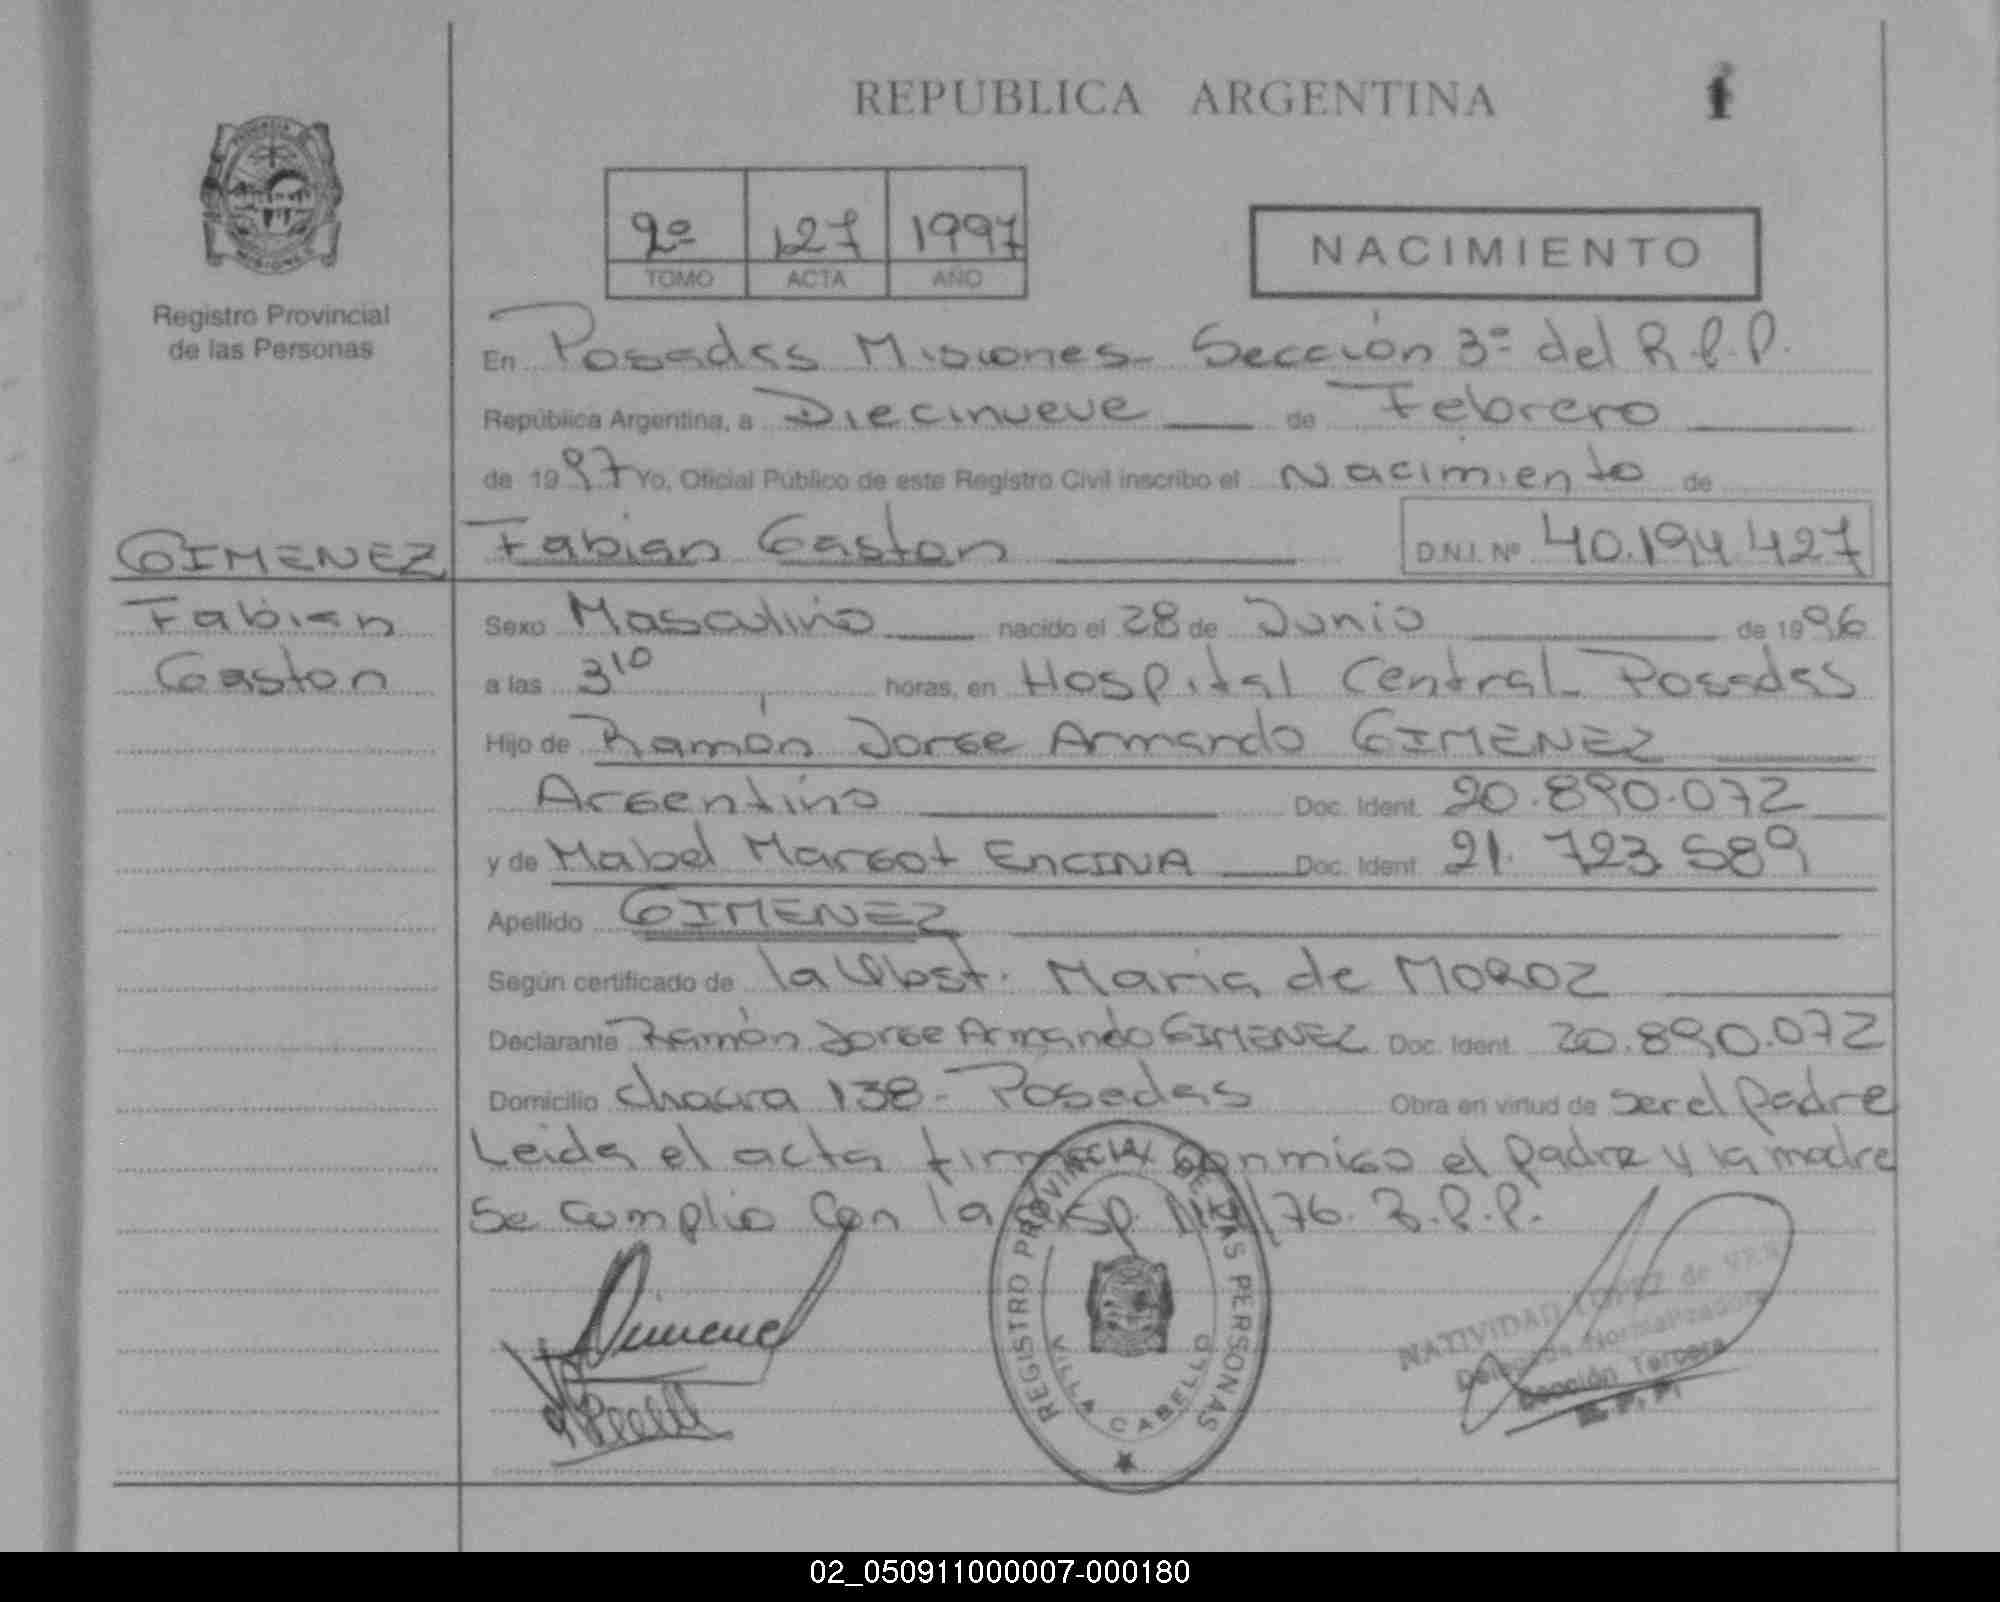 REPUBLICA ARGENTINA
2º 127 1997
TOMO ACTA AÑO
NACIMIENTO
Registro Provincial
de las Personas
En Posadas Misiones - Sección 3ª del R.P.P.
República Argentina, a Diecinueve de Febrero
de 1997 Yo, Oficial Público de este Registro Civil inscribo el Nacimiento de
GIMENEZ Fabian Gaston D.N.I. Nº 40.194.427
Fabian Sexo Masculino nacido el 28 de Junio de 1996
Gaston a las 3¹⁰ horas, en Hospital Central - Posadas
Hijo de Ramón Jorge Armando GIMENEZ
Argentino Doc. Ident. 20.890.072
y de Mabel Margot ENCINA Doc. Ident. 21.723.589
Apellido GIMENEZ
Según certificado de la Obst. Maria de MOROZ
Declarante Ramón Jorge Armando GIMENEZ Doc. Ident. 20.890.072
Domicilio Chacra 138 - Posadas Obra en virtud de ser el padre
Leida el acta firman conmigo el padre y la madre
Se cumplio con la Disp. /76. R.P.P.
REGISTRO PROVINCIAL DE LAS PERSONAS
VILLA CABELLO
NATIVIDAD LOPEZ de
Delegada Normalizadora
Sección Tercera
R.P.P.
02_050911000007-000180